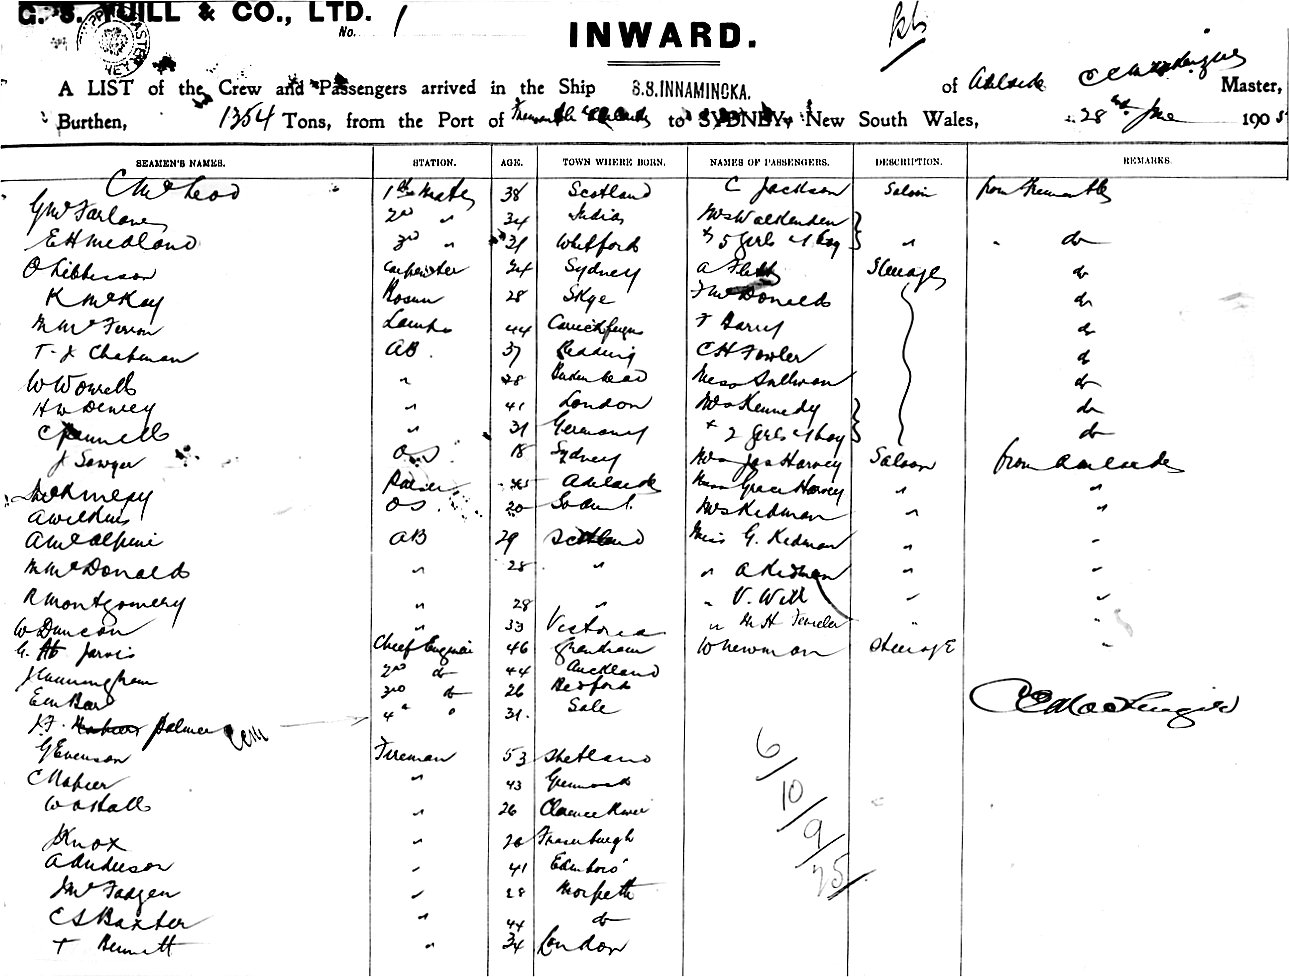 G. S. YUILL & CO., LTD.
No. 1
INWARD.
A LIST of the Crew and Passengers arrived in the Ship S.S. INNAMINCKA. of Adelaide Master,
Burthen, 1354 Tons, from the Port of Fremantle & Adelaide to SYDNEY, New South Wales, 28 June 1905
SEAMEN'S NAMES. STATION. AGE. TOWN WHERE BORN. NAMES OF PASSENGERS. DESCRIPTION. REMARKS.
C McLeod 1st Mate 38 Scotland C Jackson Saloon from Fremantle
G McFarlane 2nd " 34 India Mrs Walkenden
E H Medland 3rd " 31 Whitford & 5 girls & 1 boy " " do
Carpenter 24 Sydney A Flett Steerage do
K McKay Bosun 28 Skye F McDonald do
Lamps 44 Carrickfergus T Barry do
T. J Chapman AB. 37 Reading C H Fowler do
W Worrell " 28 Birkenhead Miss Sullivan do
H W Dewey " 41 London Mrs Kennedy do
C Pennell " 31 Germany & 2 girls & 1 boy do
J Sawyer OS 18 Sydney Mrs Jas Harvey Saloon from Adelaide
Adelaide Miss Grace Harvey " "
A Wilkins OS 20 Mrs Kidman " "
A McAlpine AB 29 Scotland Miss G. Kidman " "
M McDonald " 28 " " A Kidman " "
R Montgomery " 28 " " V. Will " "
W Duncan " 33 Victoria " M H "
G. Jarvis Chief Engineer 46 Grantham W Newman Steerage "
J Cunningham 2nd do 44 Auckland
3rd do 26 Bedford
J. F. Palmer 4th " 31. Sale
G Evenson Fireman 53 Shetland
C Mahier " 43 Greenock
W A Hall " 26 Clarence River
J Knox " 26 Fraserburgh
A Anderson " 41 Edinboro'
J McFadgen " 28 Morpeth
C S Baxter " 44 do
T Bennett " 34 London
6/10/9/75/